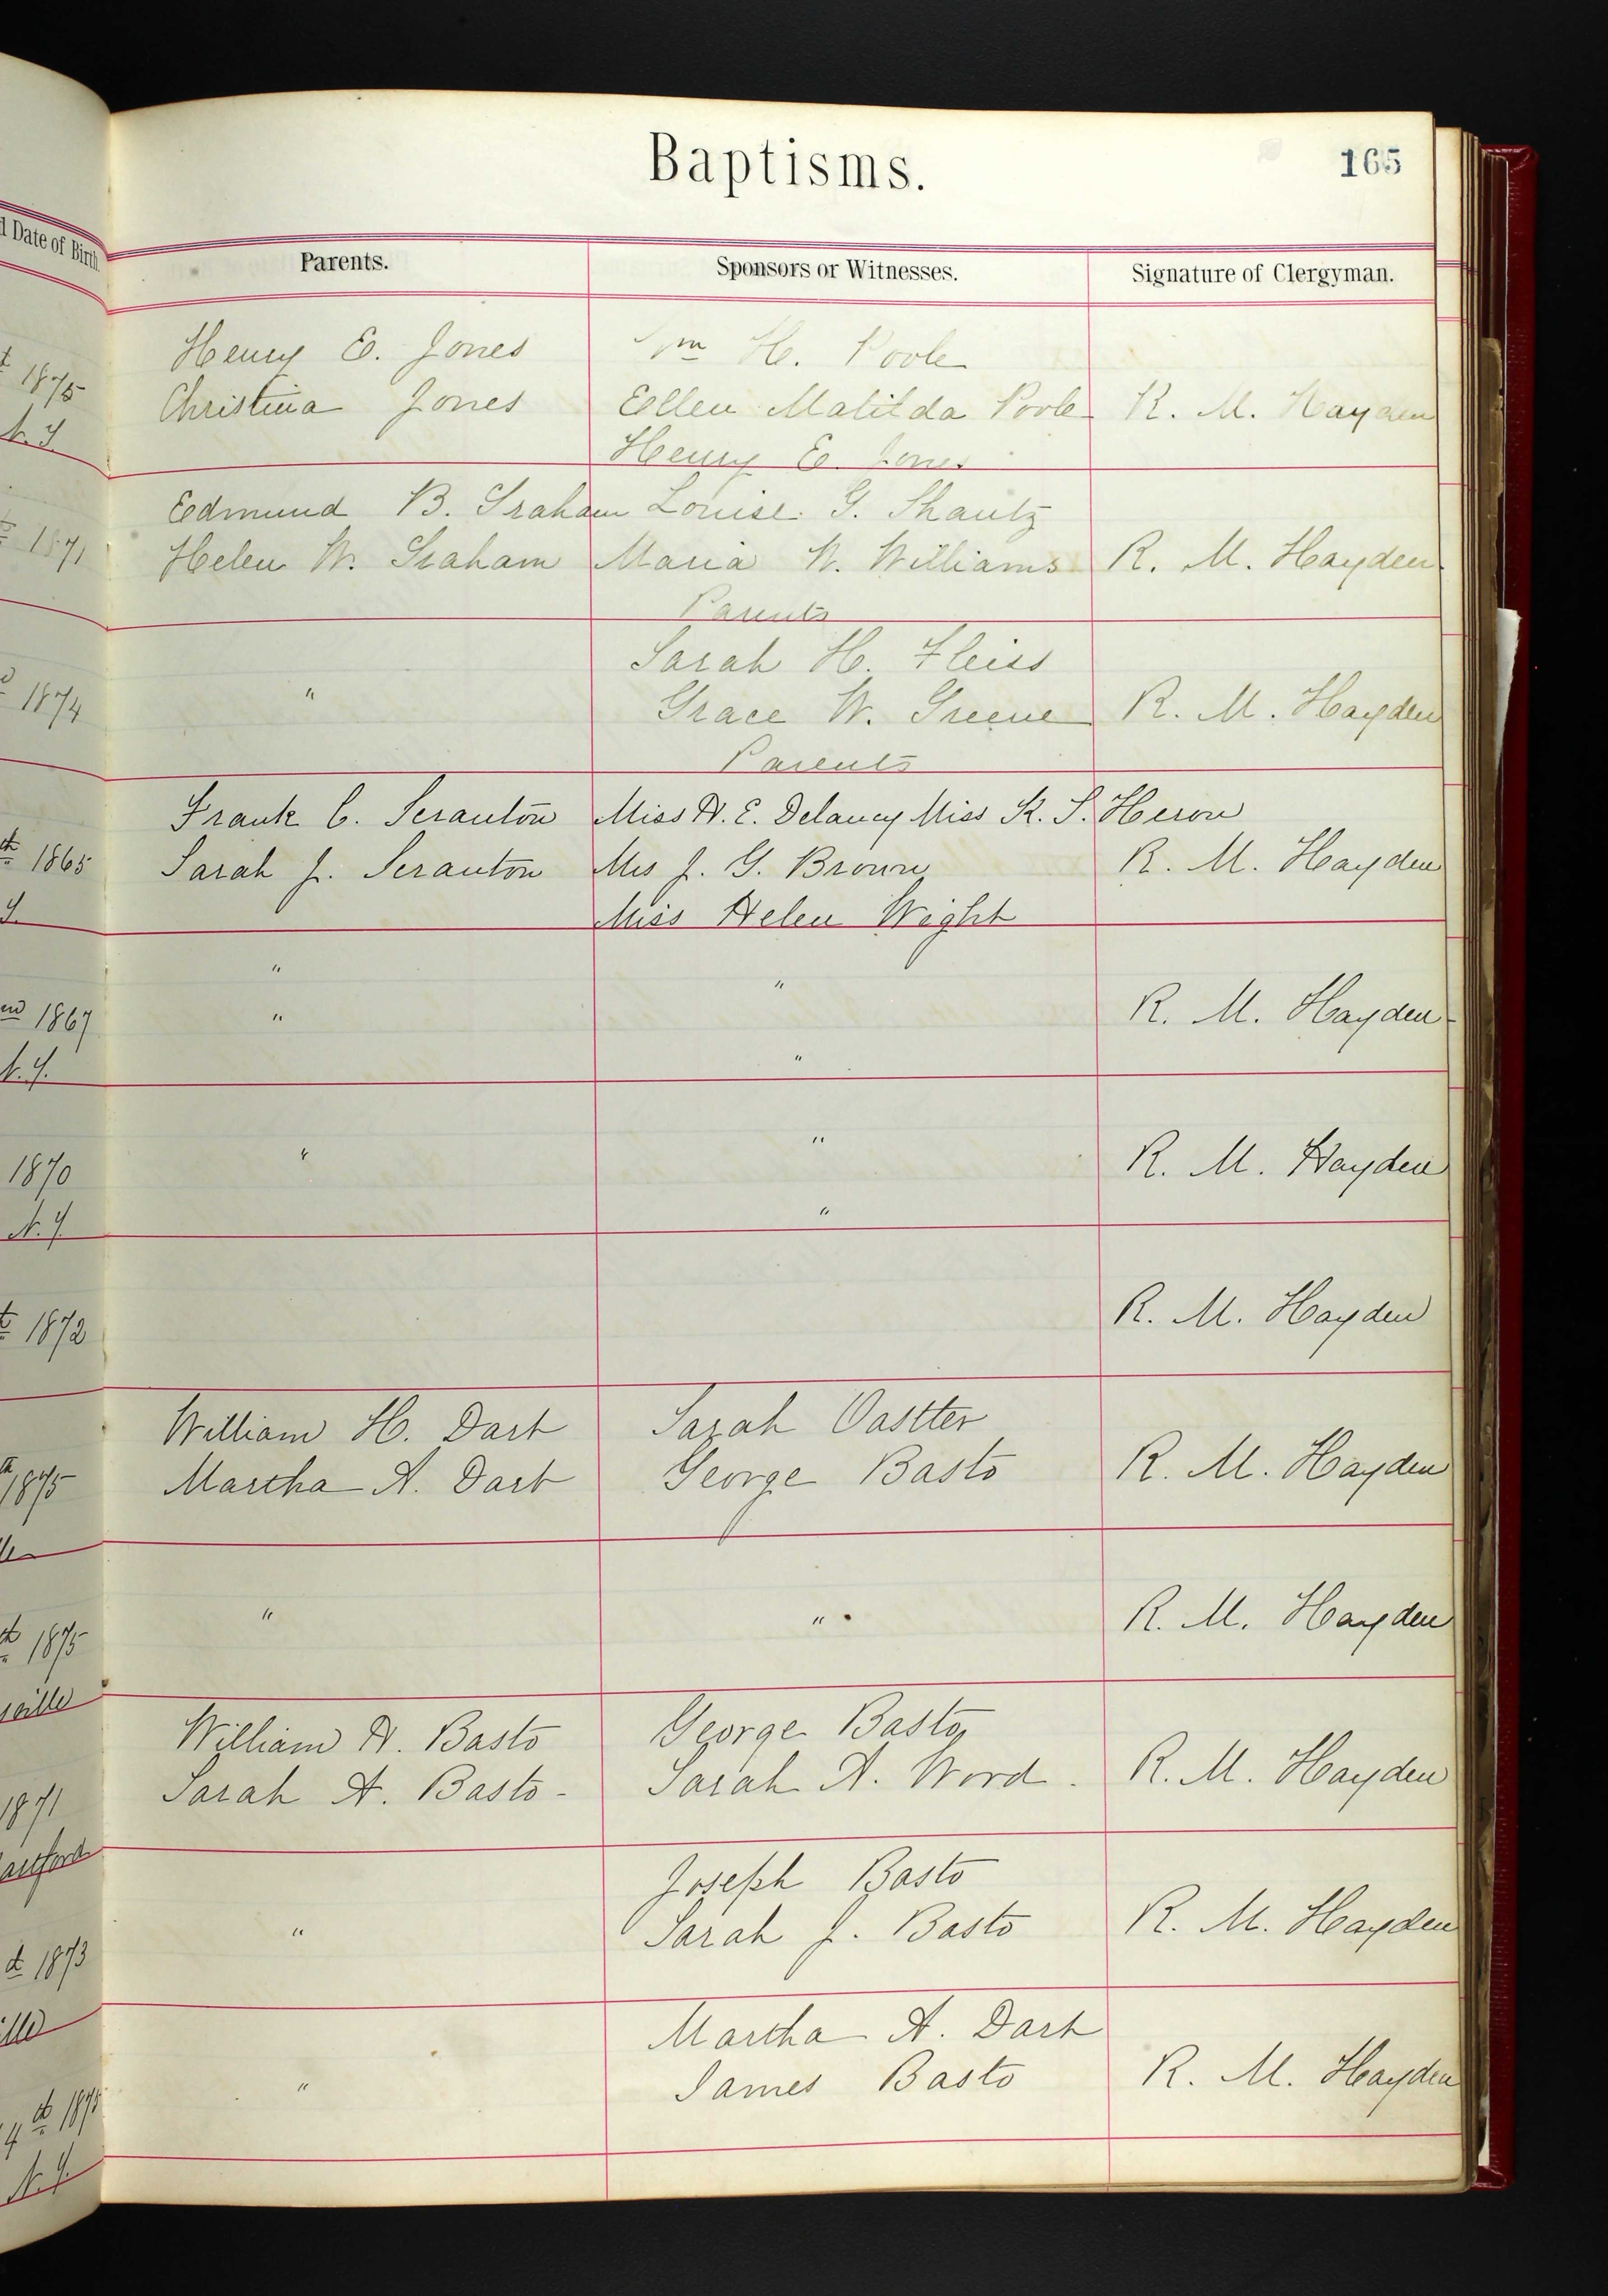 Baptisms.
165
d Date of Birth.
Parents. Sponsors or Witnesses. Signature of Clergyman.
Henry E. Jones Wm H. Poole
1875 Christina Jones Ellen Matilda Poole R. M. Hayden
N. Y. Henry E. Jones
Edmund B. Graham Louise G. Shantz
1871 Helen W. Graham Maria W. Williams R. M. Hayden
Parents
Sarah H. Fleiss
1874 " Grace W. Greene R. M. Hayden
Parents
Frank C. Scranton Miss H. E. Delancy Miss K. S. Heron
1865 Sarah J. Scranton Mrs J. G. Brown R. M. Hayden
Y. Miss Helen Wight
" "
1867 " R. M. Hayden
N. Y. "
"
1870 " R. M. Hayden
N. Y. "
1872 R. M. Hayden
William H. Dart Sarah Oastter
1875 Martha A. Dart George Basto R. M. Hayden
1875 " " R. M. Hayden
ville
William H. Basto George Basto
1871 Sarah A. Basto - Sarah A. Word. R. M. Hayden
Joseph Basto
1873 " Sarah J. Basto R. M. Hayden
ille
Martha A. Dart
" James Basto R. M. Hayden
N. Y.